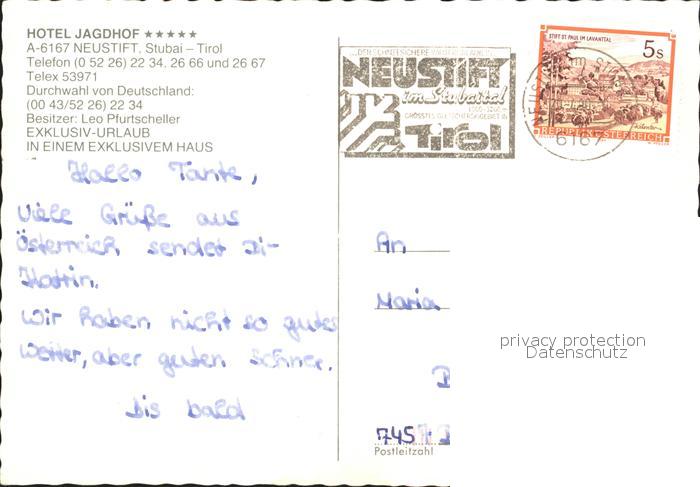 HOTEL JAGDHOF ★★★★★
A-6167 NEUSTIFT, Stubai – Tirol
Telefon (0 52 26) 22 34, 26 66 und 26 67
Telex 53971
Durchwahl von Deutschland:
(00 43/52 26) 22 34
Besitzer: Leo Pfurtscheller
EXKLUSIV-URLAUB
IN EINEM EXKLUSIVEM HAUS
Hallo Tante,
Viele Grüße aus
Österreich sendet Di-
Katrin.
Wir haben nicht so gutes
Wetter, aber guten Schnee.
Bis bald
NEUSTIFT
im Stubaital
Tirol
STIFT ST. PAUL IM LAVANTTAL
5s
REPUBLIK ÖSTERREICH
6167
An
Maria
privacy protection
Datenschutz
745
Postleitzahl